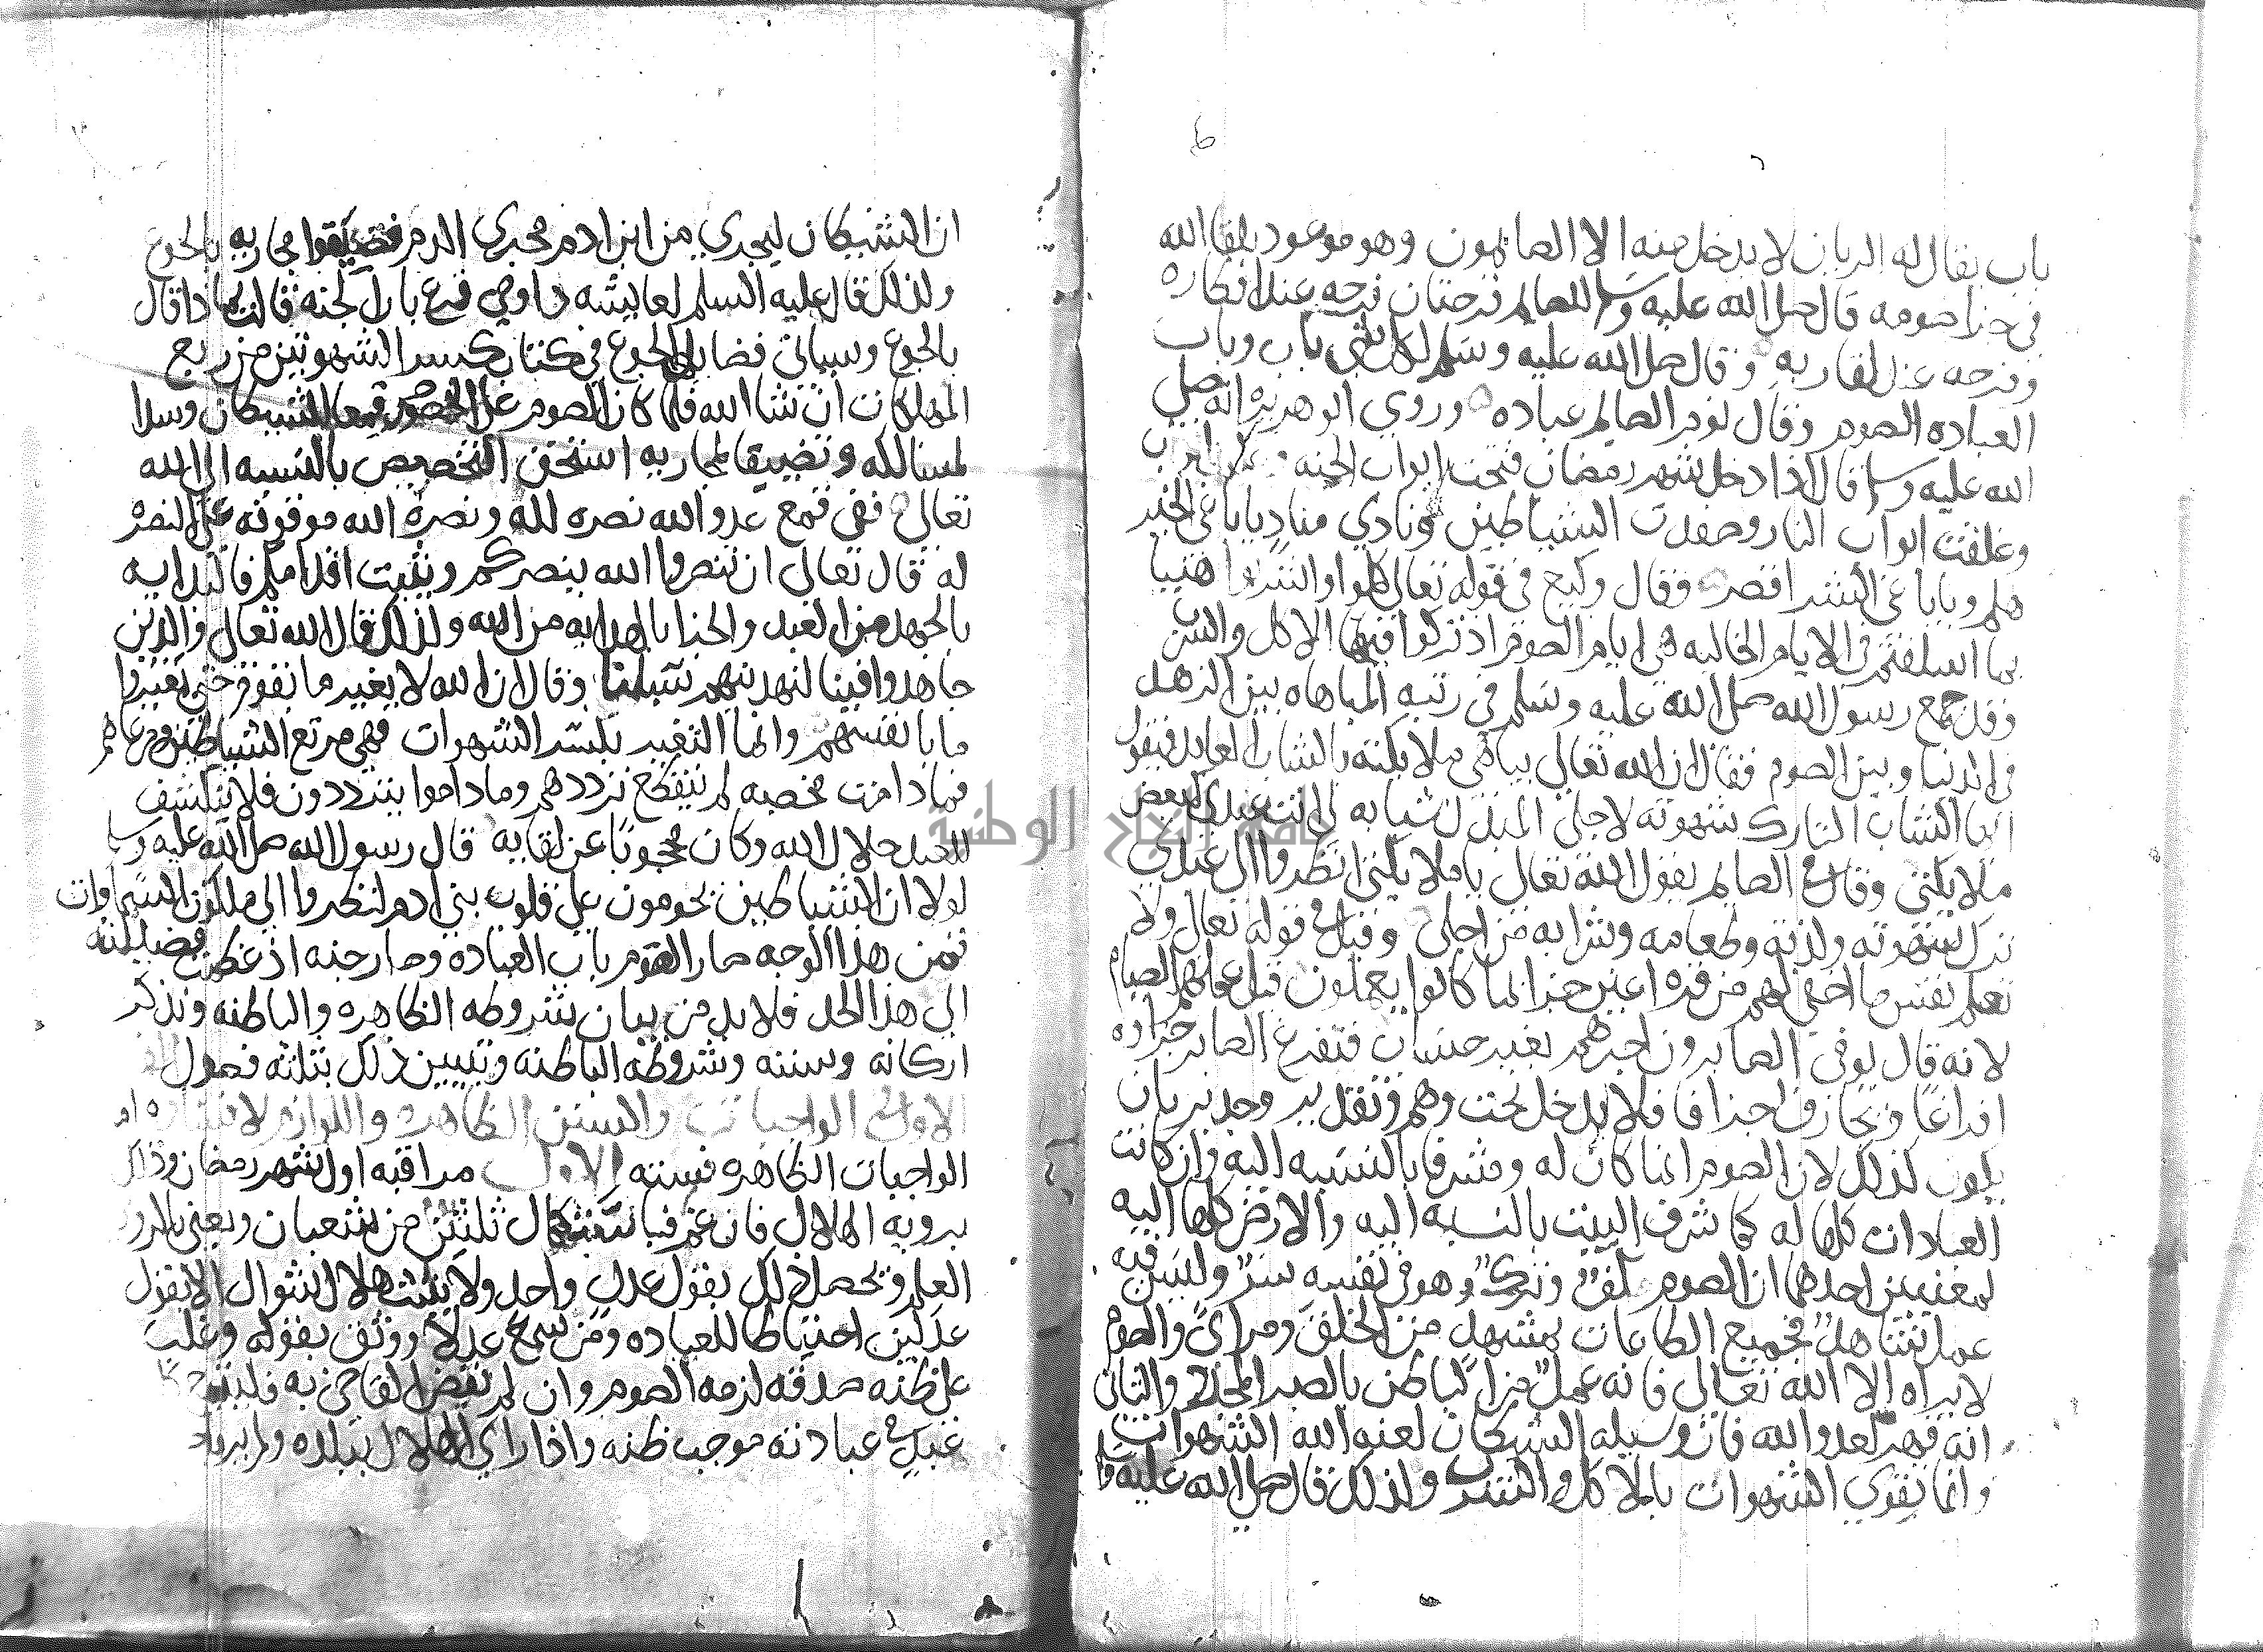 باب يقال له الريان لا يدخل منه الا الصائمون وهو موعود بلقا الله
في جزا صومه قال صلى الله عليه وسلم للصائم فرحتان فرحه عند افطاره
وفرحه عند لقا ربه وقال صلى الله عليه وسلم لكل شي باب وباب
العباده الصوم وقال نوم الصايم عباده وروي ابو هريره انه صلى
الله عليه وسلم قال اذا دخل شهر رمضان فتحت ابواب الجنه
وغلقت ابواب النار وصفدت الشياطين ونادي مناد يا باغي الخير
هلم ويا باغي الشر اقصر وقال وكيع في قوله تعالى كلوا واشربوا هنيا
بما اسلفتم في الايام الخاليه هي ايام الصوم اذ تركوا فيها الاكل والشرب
وقد جمع رسول الله صلى الله عليه وسلم في رتبه المباهاه بين الزهد
في الدنيا وبين الصوم فقال ان الله تعالى يباهي ملايكته بالشاب العابد فيقول
ايها الشاب التارك شهوته لاجلي المبذل شبابه لي انت عندي كبعض
ملايكتي وقال في الصايم يقول الله تعالى يا ملايكتي انظروا الى عبدي
ترك شهوته ولذته وطعامه وشرابه من اجلي وقيل في قوله تعالى ولا
تعلم نفس ما اخفي لهم من قره اعين جزا بما كانوا يعملون قيل عملهم الصيام
لانه قال يوفى الصابرون اجرهم بغير حساب فتفرغ الصابر جزاه
افراغا ويجازف جزافا فلا يدخل تحت وهم وتقدير وجدير بان
يكون كذلك لان الصوم انما كان له ومشرفا بالنسبه اليه وان كانت
العبادات كلها له كما شرف البيت بالنسبه اليه والارض كلها اليه
لمعنيين احدهما ان الصوم كف وترك وهو في نفسه سر وليس فيه
عمل يشاهد فجميع الطاعات بمشهد من الخلق ومراى والصوم
لا يراه الا الله تعالى فانه عمل من الباطن بالصبر المجرد والثاني
انه قهر لعدو الله فان وسيله الشيطان لعنه الله الشهوات
وانما تقوي الشهوات بالاكل والشرب ولذلك قال صلى الله عليه
ان الشيطان ليجري من ابن ادم مجري الدم فضيقوا مجاريه بالجوع
ولذلك قال عليه السلم لعايشه داومي قرع باب الجنه قالت بماذا قال
بالجوع وسياتي فضايل الجوع في كتاب كسر الشهوتين من ربع
المهلكات ان شا الله فلما كان الصوم على الخصوص قمعا للشيطان وسدا
لمسالكه وتضييقا لمجاريه استحق التخصيص بالنسبه الى الله
تعالى ففي قمع عدو الله نصره لله ونصره الله موقوفه على النصره
له قال تعالى ان تنصروا الله ينصركم ويثبت اقدامكم فالبدايه
بالجهد من العبد والجزا بالهدايه من الله ولذلك قال الله تعالى والذين
جاهدوا فينا لنهدينهم سبلنا وقال ان الله لا يغير ما بقوم حتى يغيروا
ما بانفسهم وانما التغير بكسر الشهوات فهي مرتع الشياطين ومرعاهم
فما دامت مخصبه لم ينقطع ترددهم وما داموا يترددون فلا ينكشف
للعبد جلال الله وكان محجوبا عن لقايه قال رسول الله صلى الله عليه وسلم
لولا ان الشياطين يحومون على قلوب بني ادم لنظروا الى ملكوت السماوات
فمن هذا الوجه صار الصوم باب العباده وصار جنه اذ عظمت فضيلته
الى هذا الحد فلا بد من بيان شروطه الظاهره والباطنه ونذكر
اركانه وسننه وشروطه الباطنه وتبيين ذلك بثلثه فصول
الاول في الواجبات والسنن الظاهره واللوازم
الواجبات الظاهره فستته الاول مراقبه اول شهر رمضان وذلك
بروية الهلال فان غم فباستكمال ثلثين من شعبان ويعني بالرو
العلم ويحصل ذلك بقول عدل واحد ولا يثبت هلال شوال الا بقول
عدلين احتياطا للعباده ومن سمع عدلا ووثق بقوله وغلب
على ظنه صدقه لزمه الصوم وان لم يقض القاضي به فليتبع كل
عبد في عبادته موجب ظنه واذا راي الهلال ببلده ولم ير